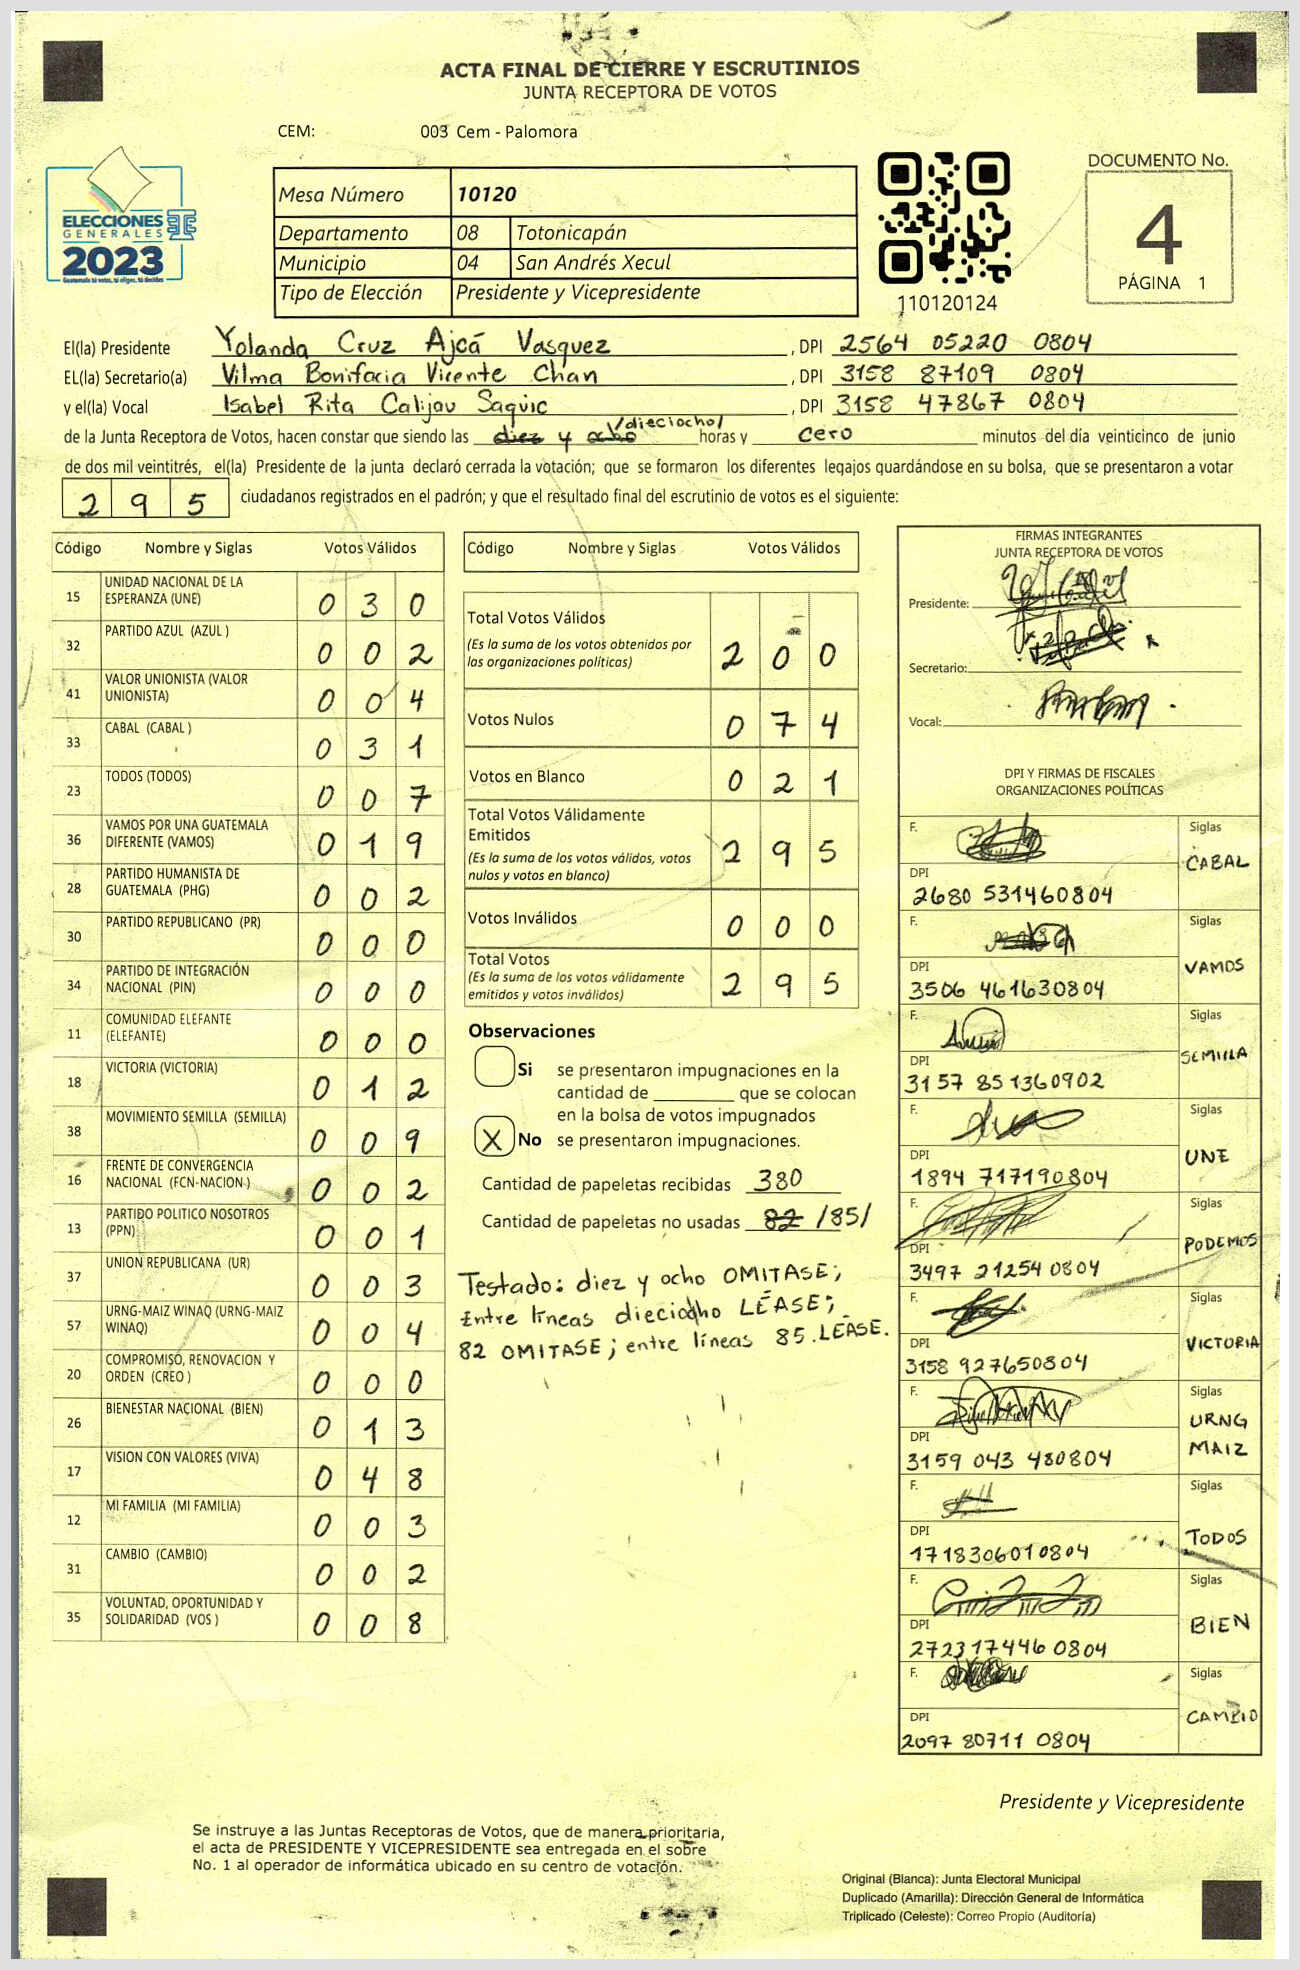 ACTA FINAL DE CIERRE Y ESCRUTINIOS
JUNTA RECEPTORA DE VOTOS
CEM: 003 Cem - Palomora
ELECCIONES
GENERALES
2023
Mesa Número 10120
Departamento 08 Totonicapán
Municipio 04 San Andrés Xecul
Tipo de Elección Presidente y Vicepresidente
110120124
DOCUMENTO No.
4
PÁGINA 1
El(la) Presidente Yolanda Cruz Ajcá Vasquez, DPI 2564 05220 0804
EL(la) Secretario(a) Vilma Bonifacia Vicente Chan, DPI 3158 87109 0804
y el(la) Vocal Isabel Rita Calijau Saquic, DPI 3158 47867 0804
/dieciocho/
de la Junta Receptora de Votos, hacen constar que siendo las diez y ocho horas y cero minutos del día veinticinco de junio
de dos mil veintitrés, el(la) Presidente de la junta declaró cerrada la votación; que se formaron los diferentes legajos guardándose en su bolsa, que se presentaron a votar
295 ciudadanos registrados en el padrón; y que el resultado final del escrutinio de votos es el siguiente:
Código Nombre y Siglas Votos Válidos
15 UNIDAD NACIONAL DE LA ESPERANZA (UNE) 0 3 0
32 PARTIDO AZUL (AZUL ) 0 0 2
41 VALOR UNIONISTA (VALOR UNIONISTA) 0 0 4
33 CABAL (CABAL ) 0 3 1
23 TODOS (TODOS) 0 0 7
36 VAMOS POR UNA GUATEMALA DIFERENTE (VAMOS) 0 1 9
28 PARTIDO HUMANISTA DE GUATEMALA (PHG) 0 0 2
30 PARTIDO REPUBLICANO (PR) 0 0 0
34 PARTIDO DE INTEGRACIÓN NACIONAL (PIN) 0 0 0
11 COMUNIDAD ELEFANTE (ELEFANTE) 0 0 0
18 VICTORIA (VICTORIA) 0 1 2
38 MOVIMIENTO SEMILLA (SEMILLA) 0 0 9
16 FRENTE DE CONVERGENCIA NACIONAL (FCN-NACION ) 0 0 2
13 PARTIDO POLITICO NOSOTROS (PPN) 0 0 1
37 UNION REPUBLICANA (UR) 0 0 3
57 URNG-MAIZ WINAQ (URNG-MAIZ WINAQ) 0 0 4
20 COMPROMISO, RENOVACION Y ORDEN (CREO ) 0 0 0
26 BIENESTAR NACIONAL (BIEN) 0 1 3
17 VISION CON VALORES (VIVA) 0 4 8
12 MI FAMILIA (MI FAMILIA) 0 0 3
31 CAMBIO (CAMBIO) 0 0 2
35 VOLUNTAD, OPORTUNIDAD Y SOLIDARIDAD (VOS ) 0 0 8
Código Nombre y Siglas Votos Válidos
Total Votos Válidos
(Es la suma de los votos obtenidos por
las organizaciones políticas) 2 0 0
Votos Nulos 0 7 4
Votos en Blanco 0 2 1
Total Votos Válidamente
Emitidos
(Es la suma de los votos válidos, votos
nulos y votos en blanco) 2 9 5
Votos Inválidos 0 0 0
Total Votos
(Es la suma de los votos válidamente
emitidos y votos inválidos) 2 9 5
Observaciones
Si se presentaron impugnaciones en la
cantidad de ________ que se colocan
en la bolsa de votos impugnados
X No se presentaron impugnaciones.
Cantidad de papeletas recibidas 380
Cantidad de papeletas no usadas 82 /85/
Testado: diez y ocho OMITASE;
Entre líneas dieciocho LÉASE;
82 OMITASE; entre líneas 85.LÉASE.
FIRMAS INTEGRANTES
JUNTA RECEPTORA DE VOTOS
Presidente:
Secretario:
Vocal:
DPI Y FIRMAS DE FISCALES
ORGANIZACIONES POLÍTICAS
F. Siglas
CABAL
DPI
2680 531460804
F. Siglas
VAMOS
DPI
3506 461630804
F. Siglas
SEMILLA
DPI
3157 851360902
F. Siglas
UNE
DPI
1894 717190804
F. Siglas
PODEMOS
DPI
3497 21254 0804
F. Siglas
VICTORIA
DPI
3158 927650804
F. Siglas
URNG
MAIZ
DPI
3159 043 480804
F. Siglas
TODOS
DPI
1718306010804
F. Siglas
BIEN
DPI
272317446 0804
F. Siglas
CAMBIO
DPI
2097 80711 0804
Presidente y Vicepresidente
Se instruye a las Juntas Receptoras de Votos, que de manera prioritaria,
el acta de PRESIDENTE Y VICEPRESIDENTE sea entregada en el sobre
No. 1 al operador de informática ubicado en su centro de votación.
Original (Blanca): Junta Electoral Municipal
Duplicado (Amarilla): Dirección General de Informática
Triplicado (Celeste): Correo Propio (Auditoría)